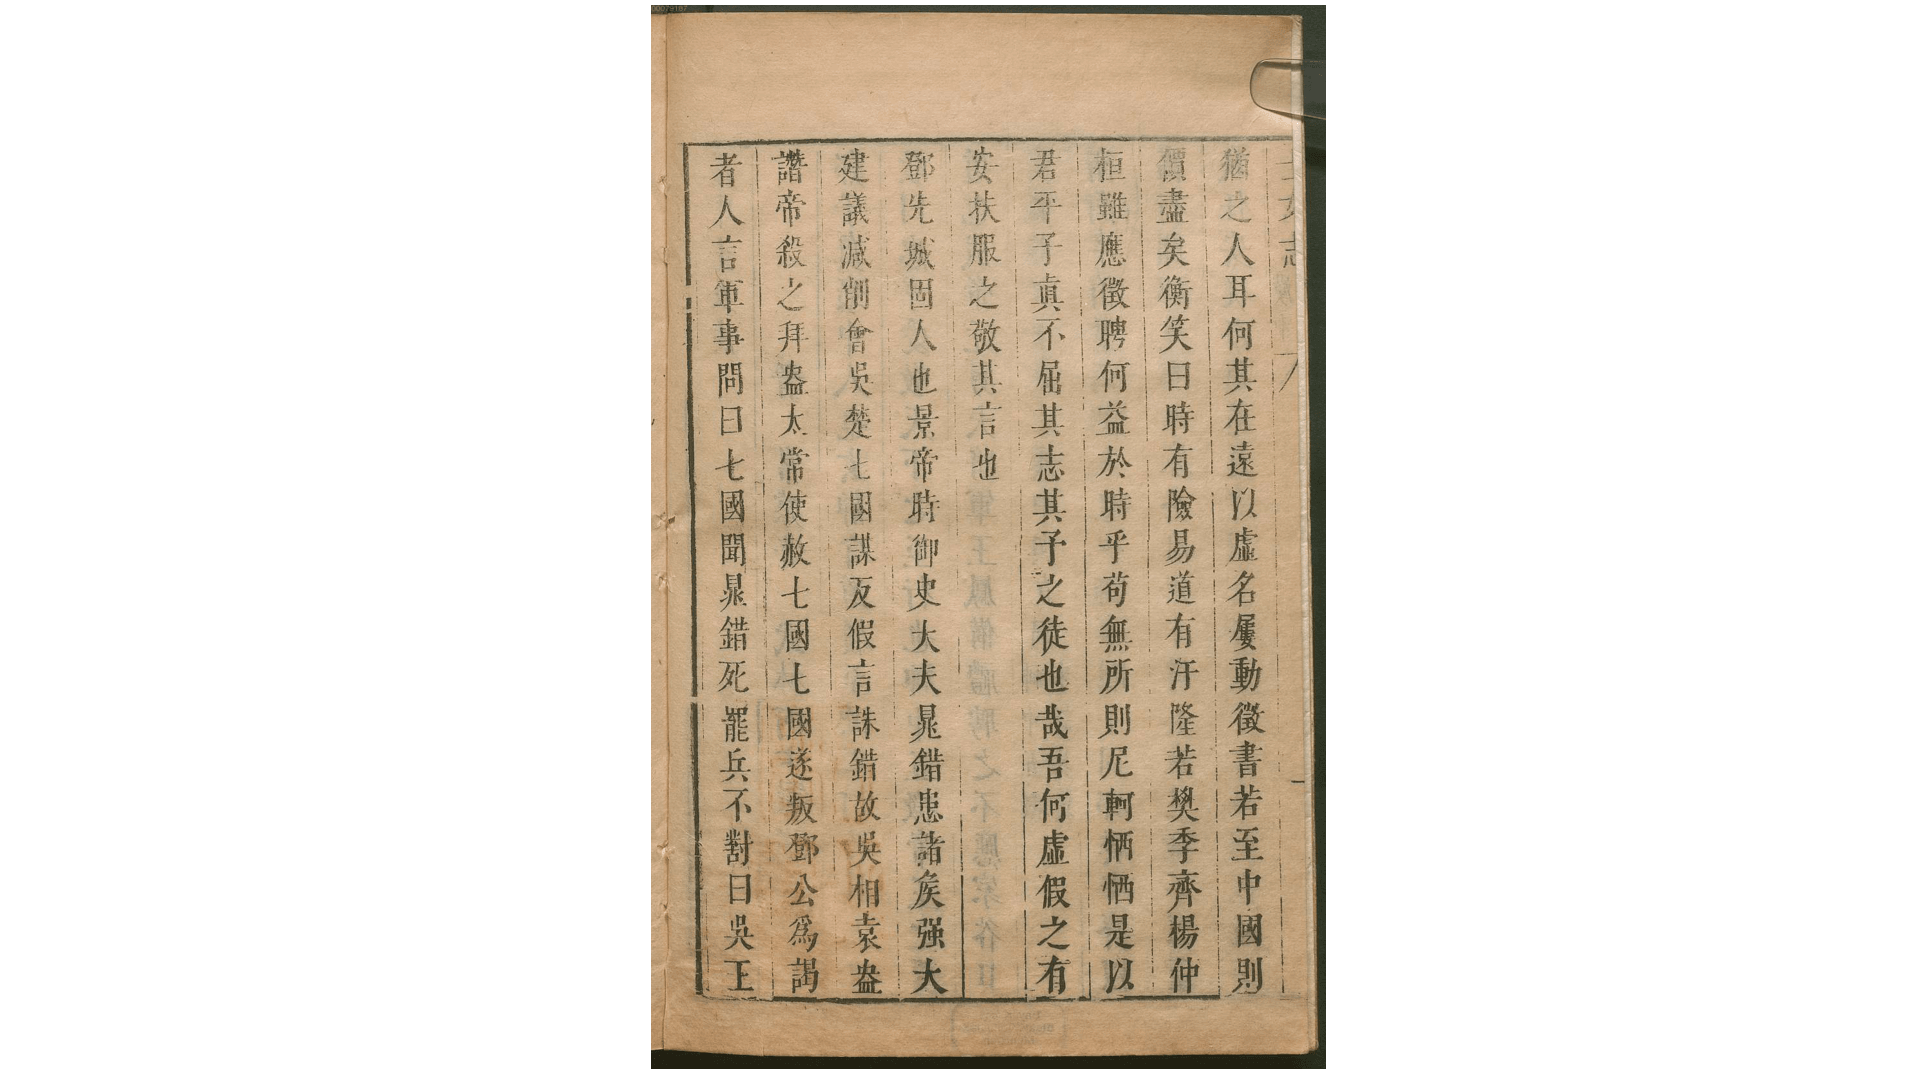 猶之人耳何其在遠以虛名屢動徵書若至中國則
價盡矣衡笑曰時有險易道有汙隆若樊季齊楊仲
桓雖應徵聘何益於時乎苟無所則尼軻恓恓是以
君平子眞不屈其志其予之徒也哉吾何虛假之有
安扶服之敬其言也
鄧先城固人也景帝時御史大夫晁錯患諸矦强大
建議減削會吳楚七國謀反假言誅錯故吳相袁盎
譖帝殺之拜盎太常使赦七國七國遂叛鄧公爲謁
者人言軍事問曰七國聞晁錯死罷兵不對曰吳王